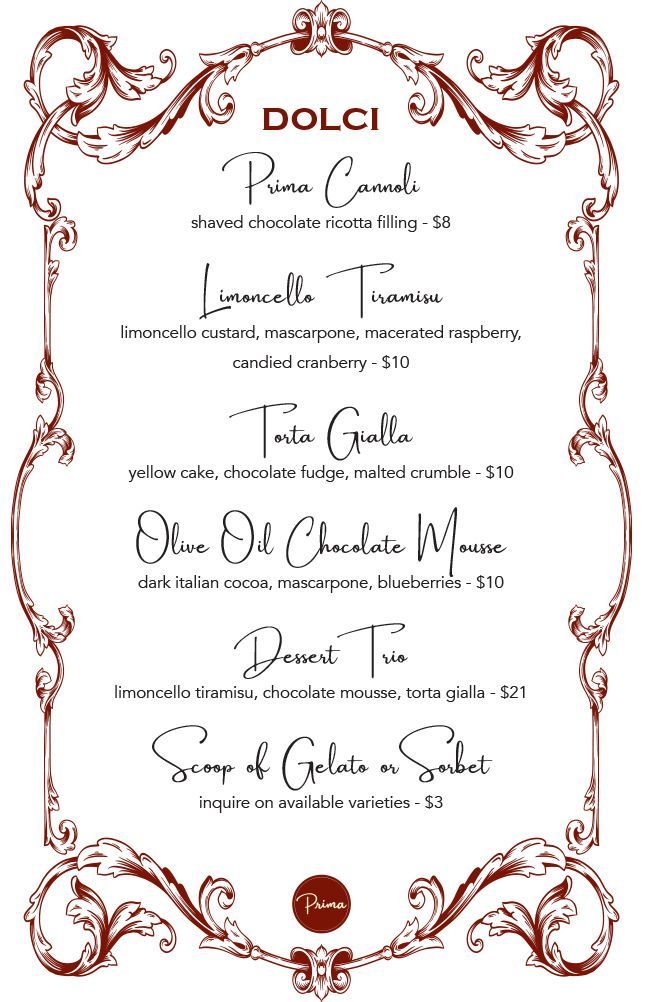 DOLCI
Prima Cannoli
shaved chocolate ricotta filling - $8
Limoncello Tiramisu
limoncello custard, mascarpone, macerated raspberry,
candied cranberry - $10
Torta Gialla
yellow cake, chocolate fudge, malted crumble - $10
Olive Oil Chocolate Mousse
dark italian cocoa, mascarpone, blueberries - $10
Dessert Trio
limoncello tiramisu, chocolate mousse, torta gialla - $21
Scoop of Gelato or Sorbet
inquire on available varieties - $3
Prima